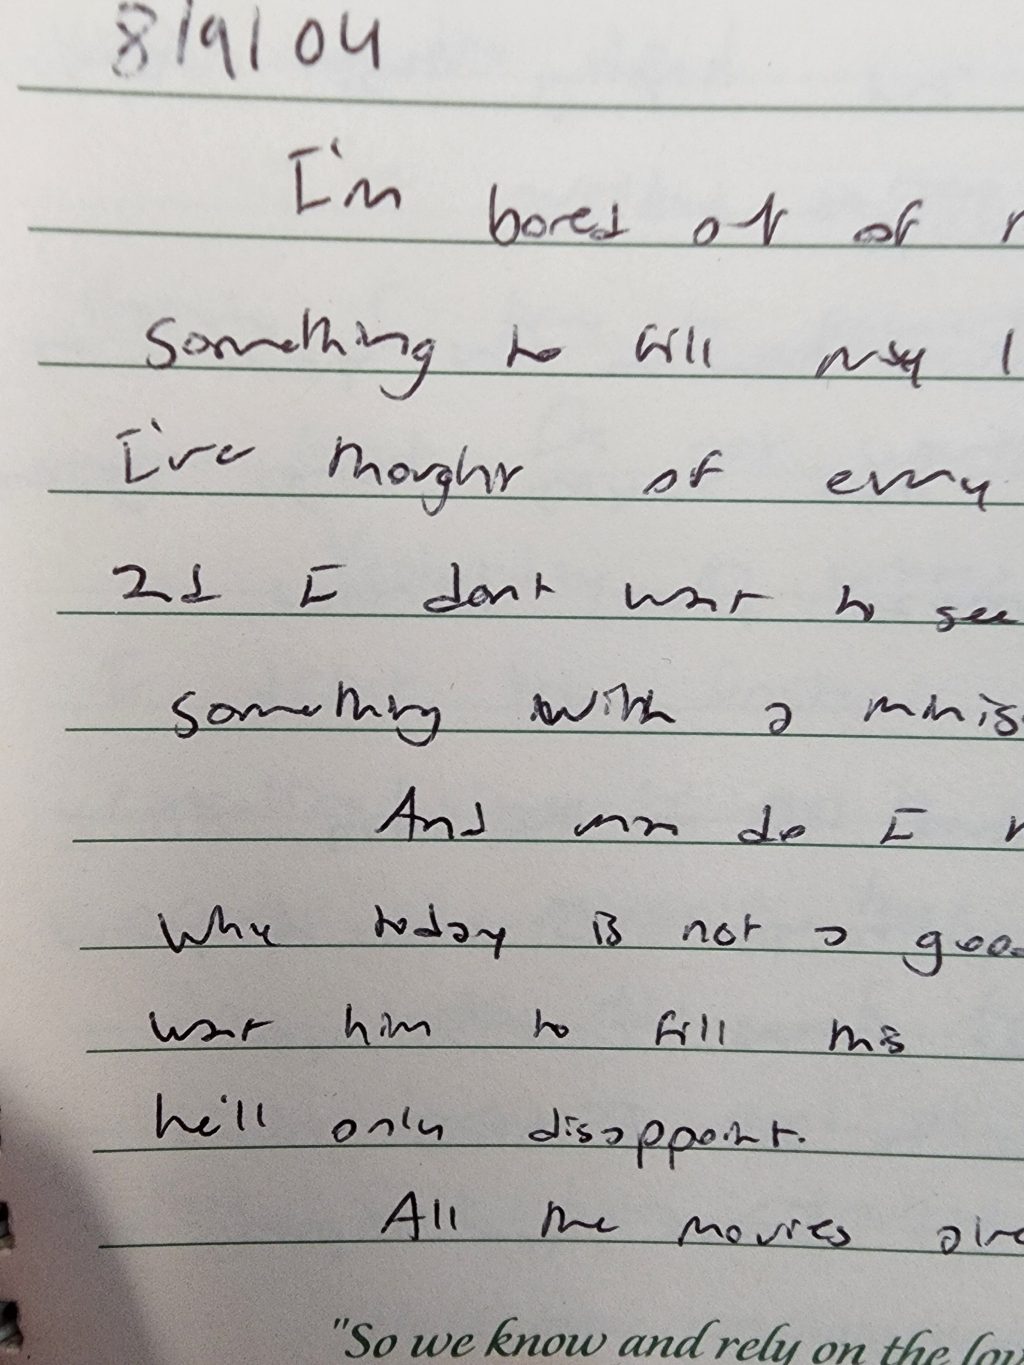 8/9/04
I'm bored out of
something to fill my
I've thought of every
2d I dont want to see
something with a minis
And man do I
Why today is not a good
want him to fill this
he'll only disappoint.
All the movies alre
"So we know and rely on the lov